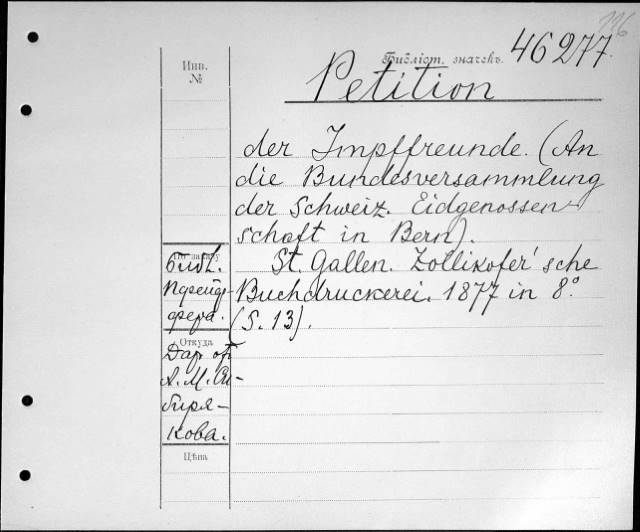 236
Инв.
№
Библіот. значекъ.
46277.
Petition
der Impffreunde. (An
die Bundesversammlung
der Schweiz. Eidgenossen-
schaft in Bern).
St. Gallen. Zollikofer'sche
Buchdruckerei. 1877 in 8°.
(S. 13).
библ.
Пфейф-
фера.
Откуда
Дар от
А. М. Си-
биря-
кова.
Цѣна